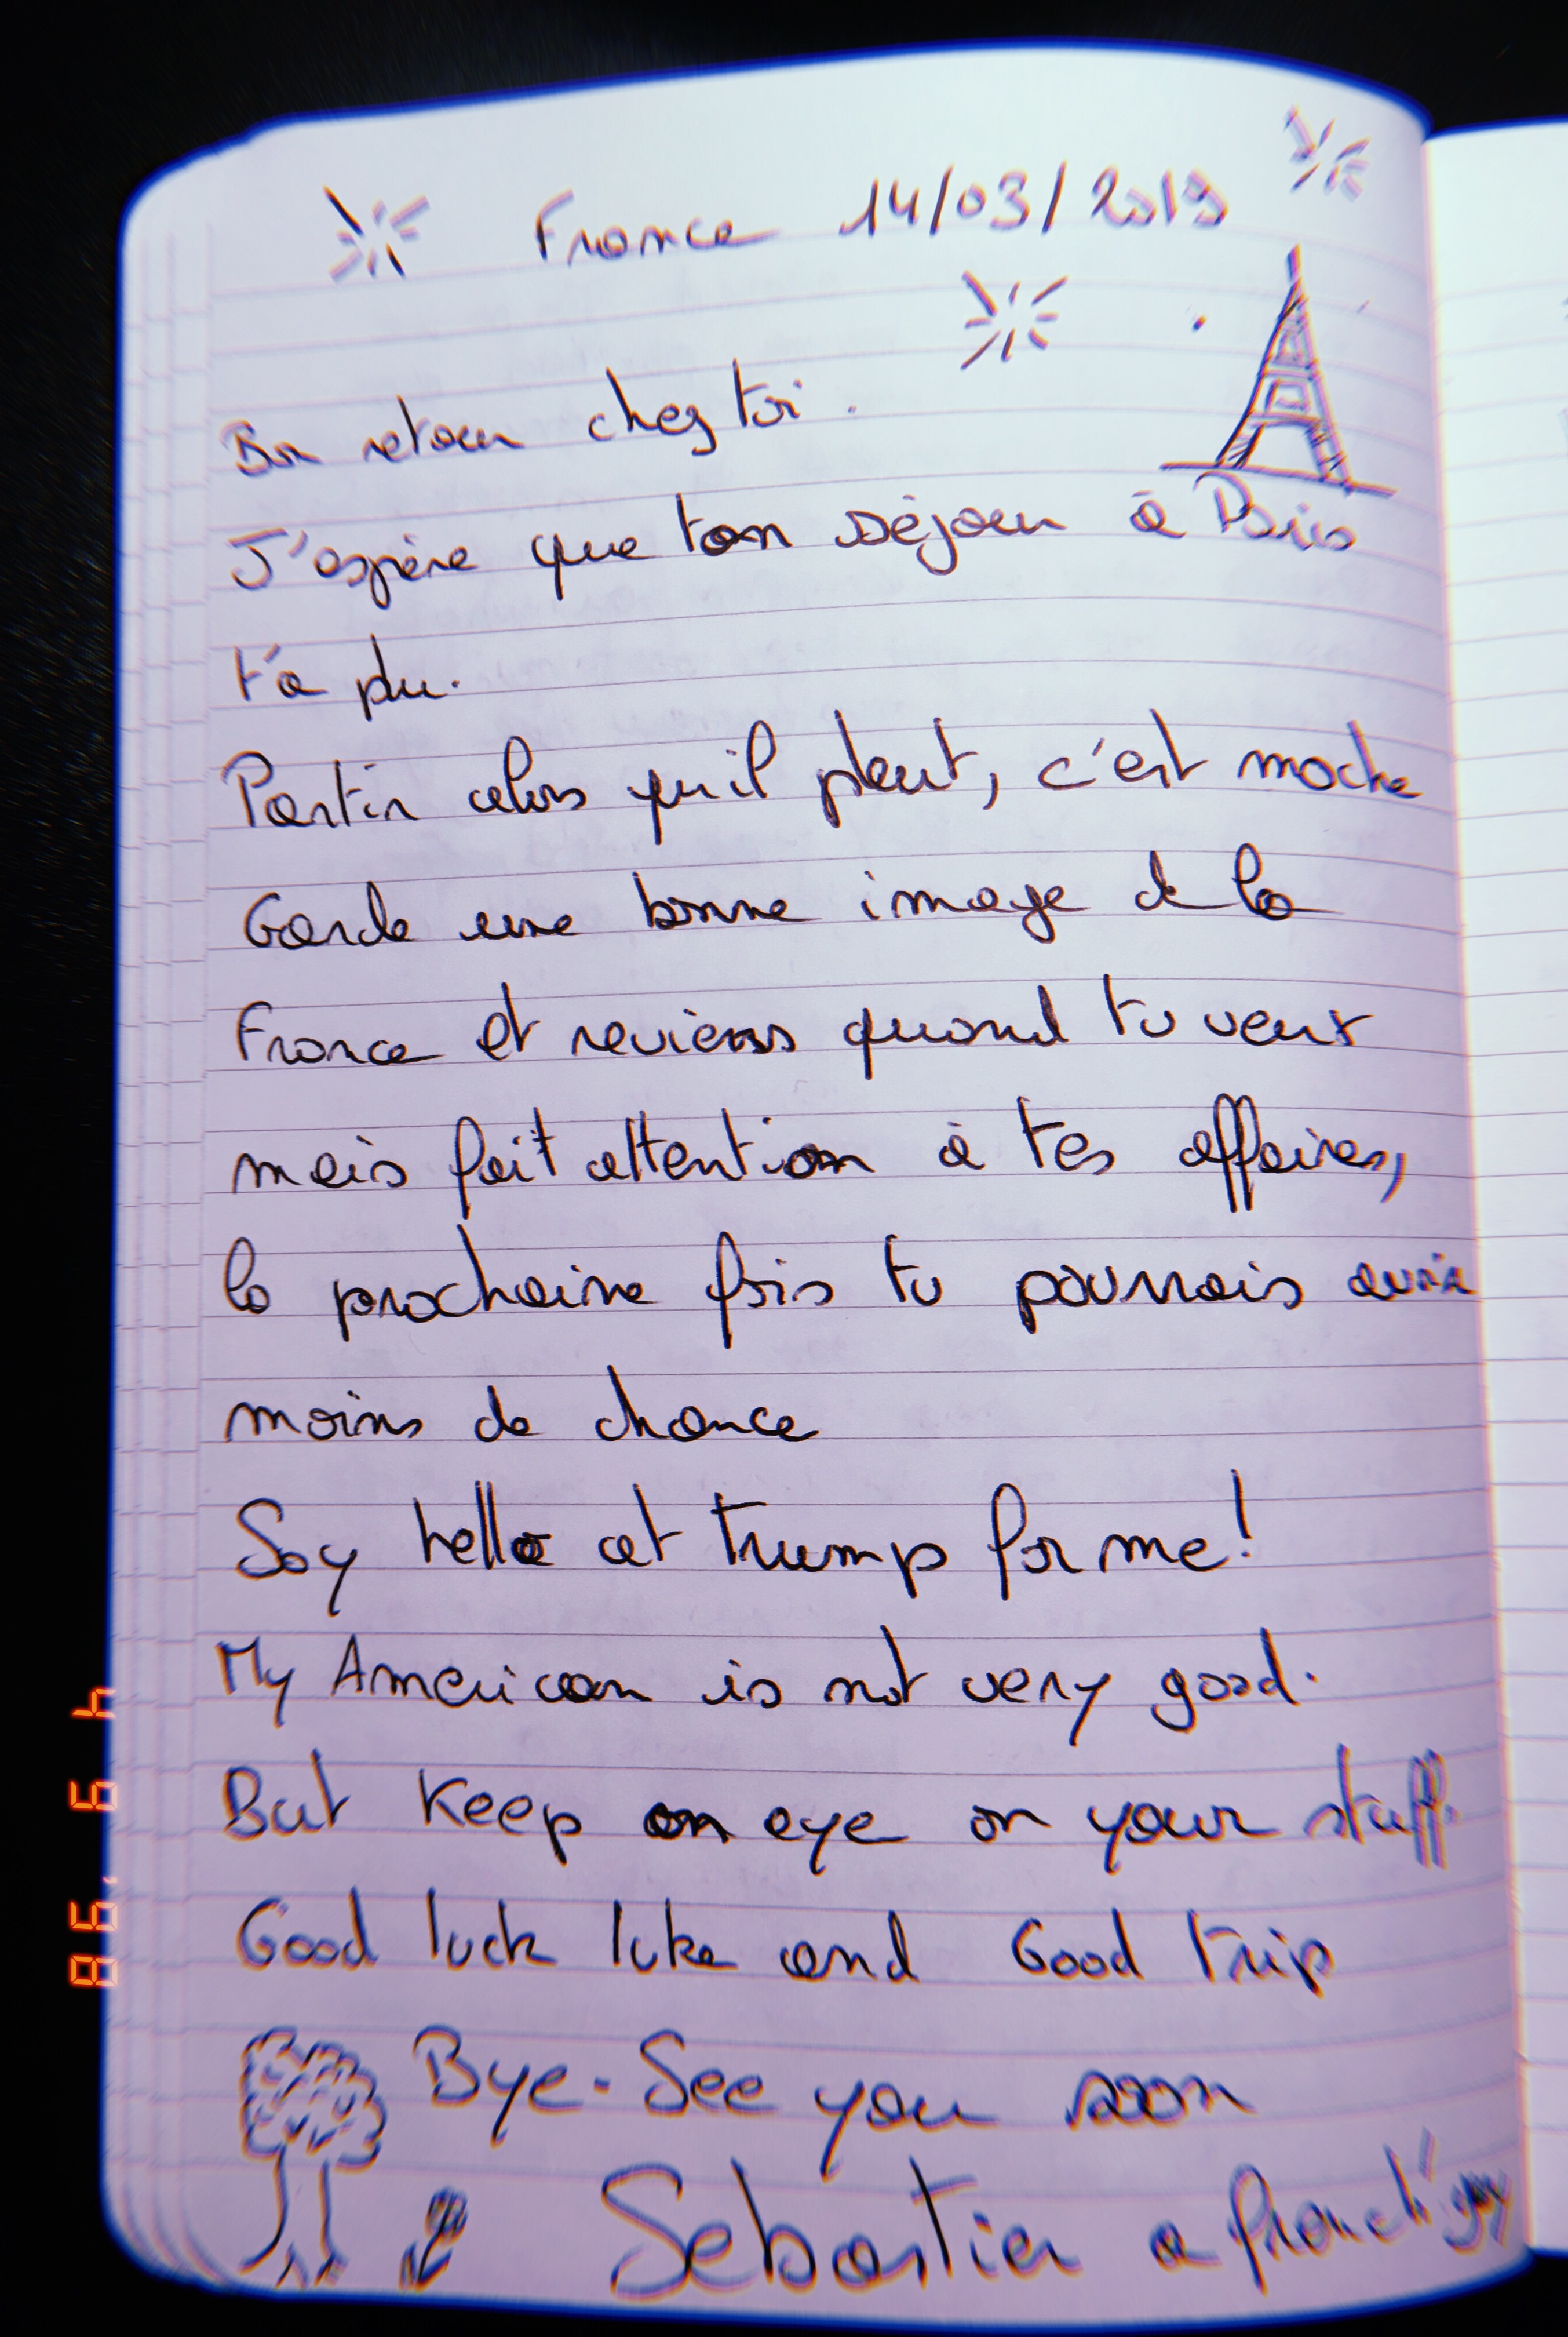 France 14/03/2019
Bon retour chez toi.
J'espère que ton séjour à Paris
t'a plu.
Partir alors qu'il pleut, c'est moche
Garde une bonne image de la
France et reviens quand tu veux
mais fait attention à tes affaires,
la prochaine fois tu pourrais avoir
moins de chance
Say hello at trump for me!
My American is not very good.
But keep an eye on your stuff.
Good luck luke and Good trip
Bye. See you soon
Sebastien a french guy